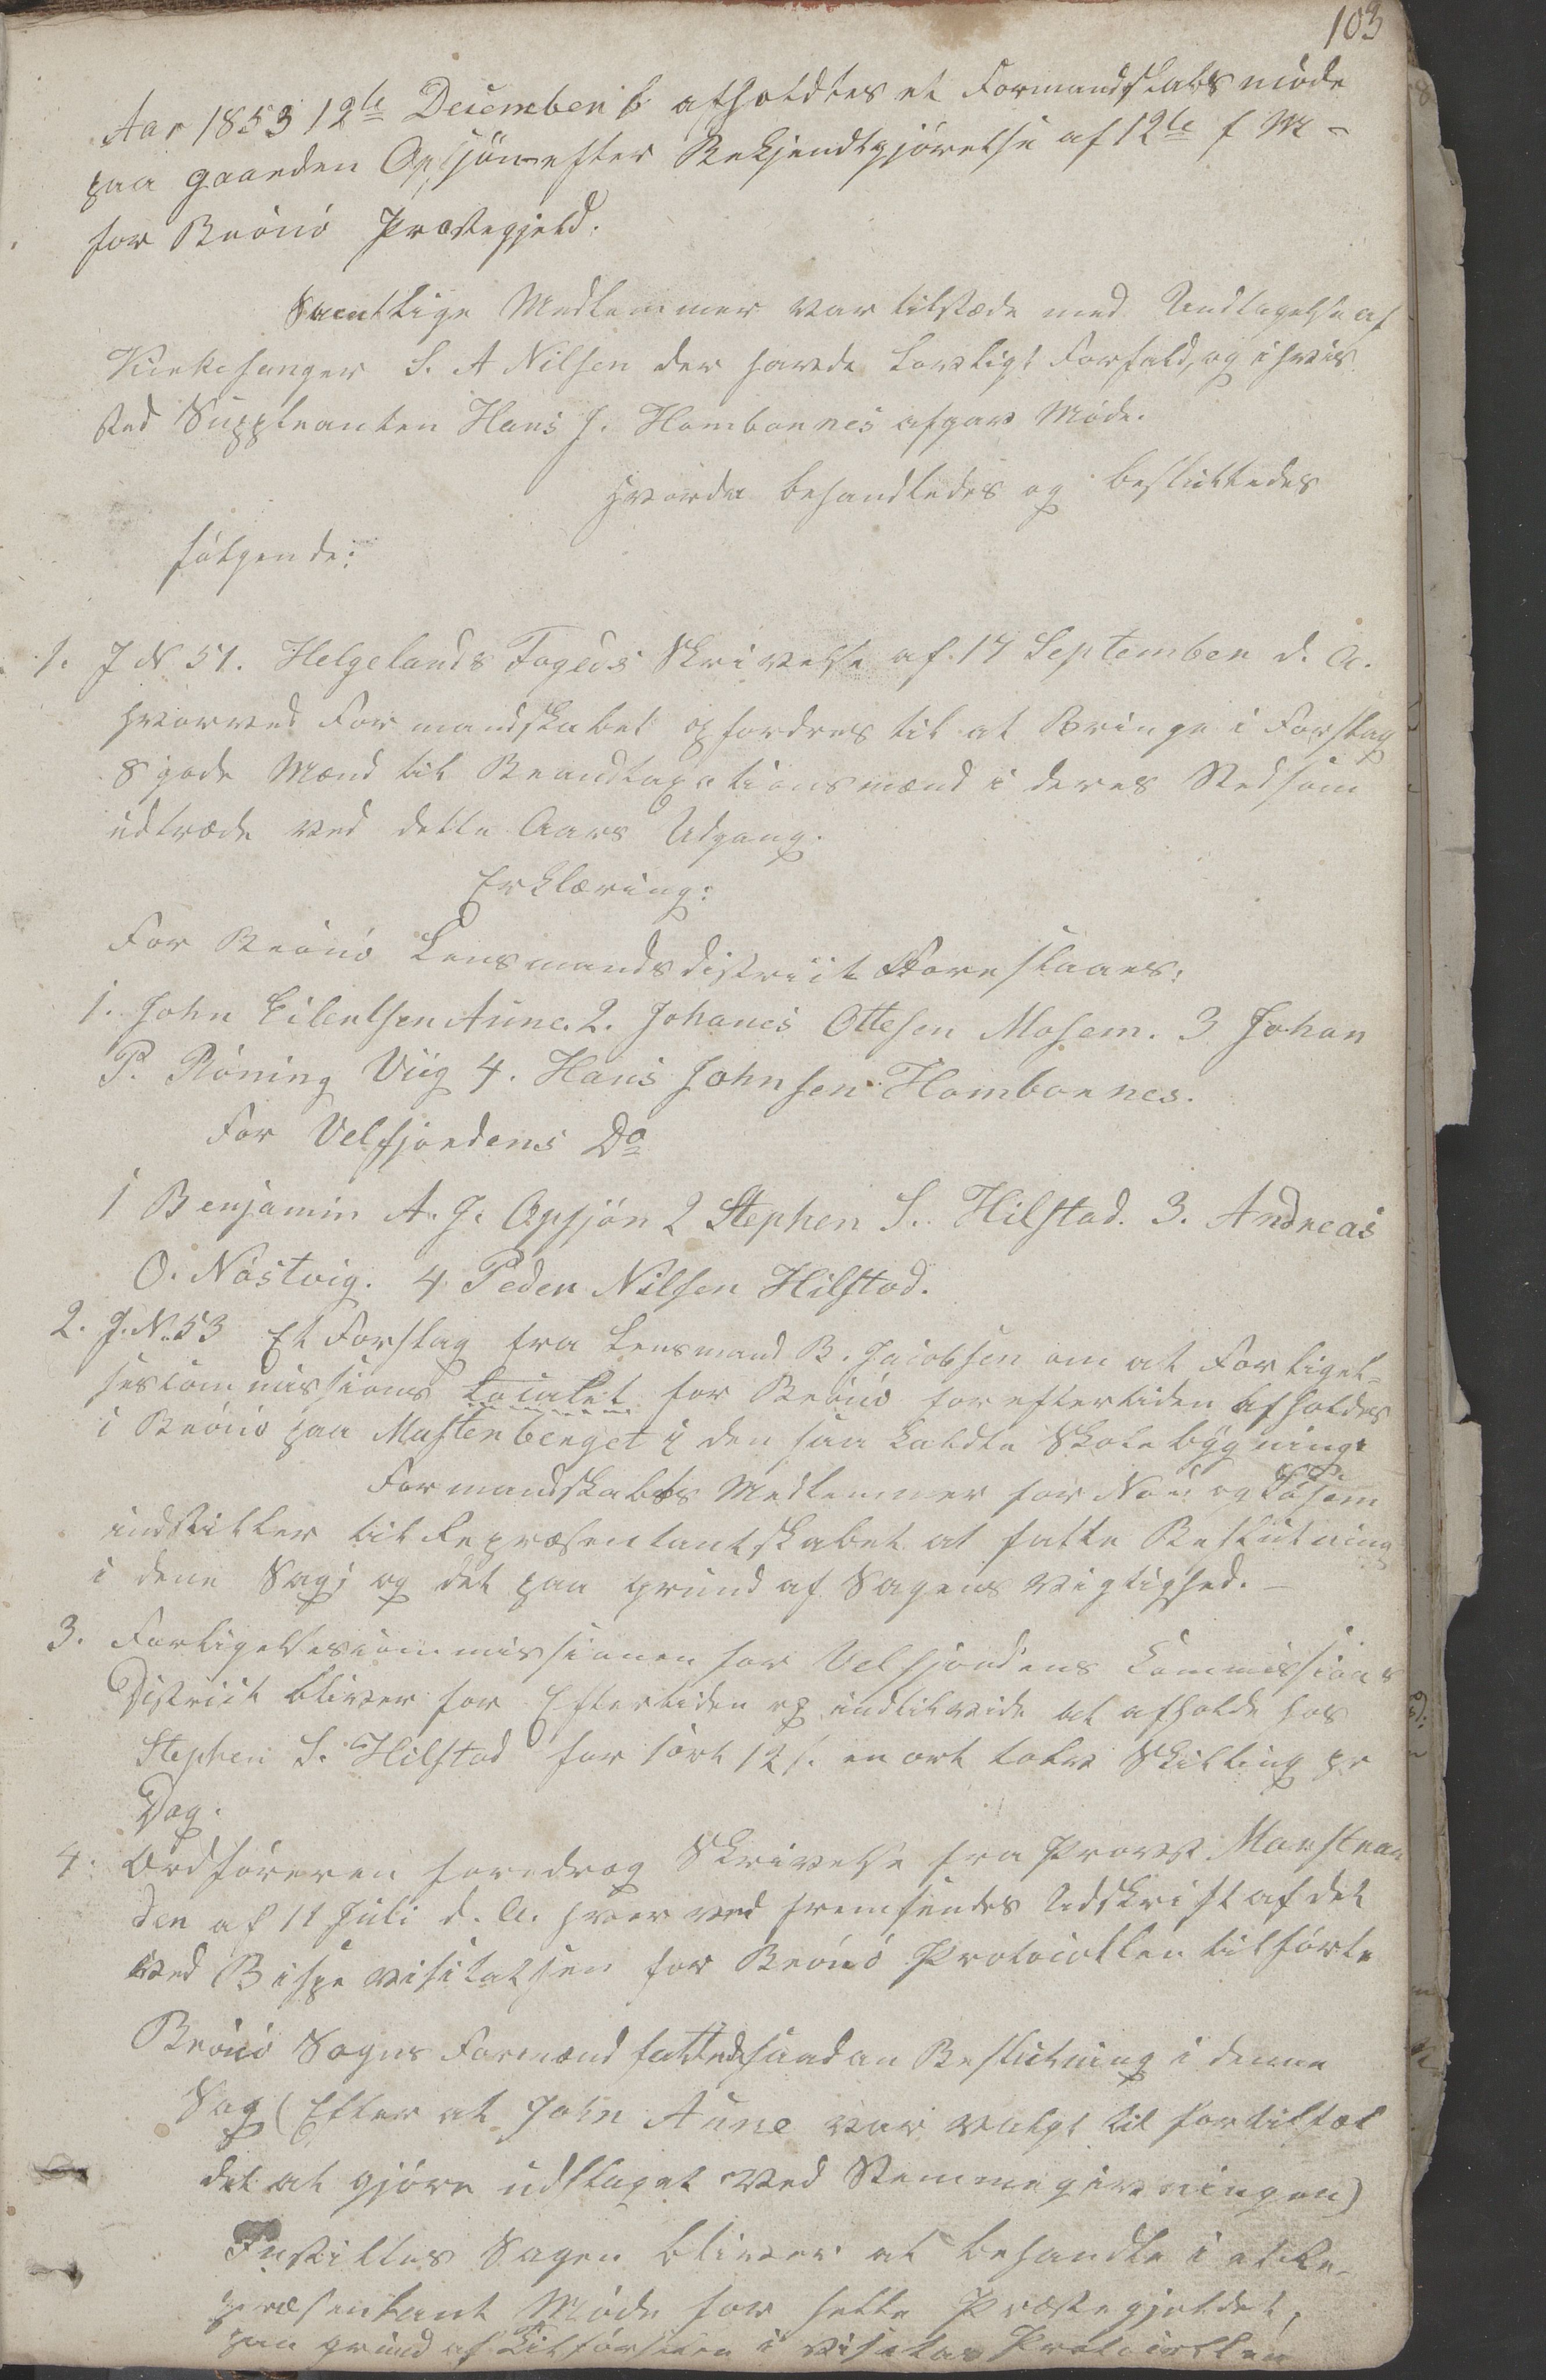 103
Aar 1853 12te December b afholdtes et Formandskabs møde
paa gaarden Opsjøn efter Bekjendtgjørelse af 12te f M -
for Brønø Præstegjeld.
Samtlige Medlemmer var tilstæde med Undtagelse af
Kirkesanger S. A Nilsen der havde Lovligt Forfald, og i hvis
sted Suppleanten Hans J. Hombornes afgav Møde.
Hvorda behandledes og besluttedes
følgende:
1. J N 51. Helgelands Fogeds Skrivelse af 14 September d. A.
hvorved Formandskabet opfordres til at Bringe i Forslag
8 gode Mænd til Brandtaxationsmænd i deres Sted som
udtræde ved dette Aars Udgang.
Erklæring:
For Brønø Lensmandsdistrict Foreslaaes:
1. John Eilertsen Aune. 2. Johanes Ottesen Mosem. 3 Johan
P. Røning Viig 4. Hans Johnsen Hombornes.
For Velfjordens Do
1 Benjamin A. J. Opsjøn 2 Stephen S. Hilstad. 3. Andreas
O. Nøstvig. 4 Peder Nilsen Hilstad.
2. J. N. 53 Et Forslag fra Lensmand B. Jacobsen om at Forligel-
sescommissions Localet for Brønø for eftertiden afholdes
i Brønø paa Mastenberget i den saa kaldte Skolebygning.
Formandskabets Medlemmer for og
indstiller til Repræsentantskabet at fatte Beslutning
i dene Sag; og det paa grund af Sagens Vigtighed. -
3. Forligelsescommissionen for Velfjordens Commissions
District bliver for Eftertiden og indtilvide at afholde hos
Stephen S. Hilstad for 1ort 12 s. en ort tolv Skilling pr
Dag.
4. Ordføreren foredrog Skrivelse fra Provst Marstran
den af 11 Juli d. A. hvorved fremsendes Udskrift af det
ved Bispe visitatsen for Brønø Protocollen tilførte
Brønø Sogns Formænd fattede saadan Beslutning i denne
Sag (Efter at John Aune var valgt til for tilfæl
det at gjøre udslaget ved Stemmegivningen)
Instilles Sagen bliver at behandle i et Re-
præsentant Møde for hele Præstegjeldet,
paa grund af Tilførselen i Visitas Protocollen